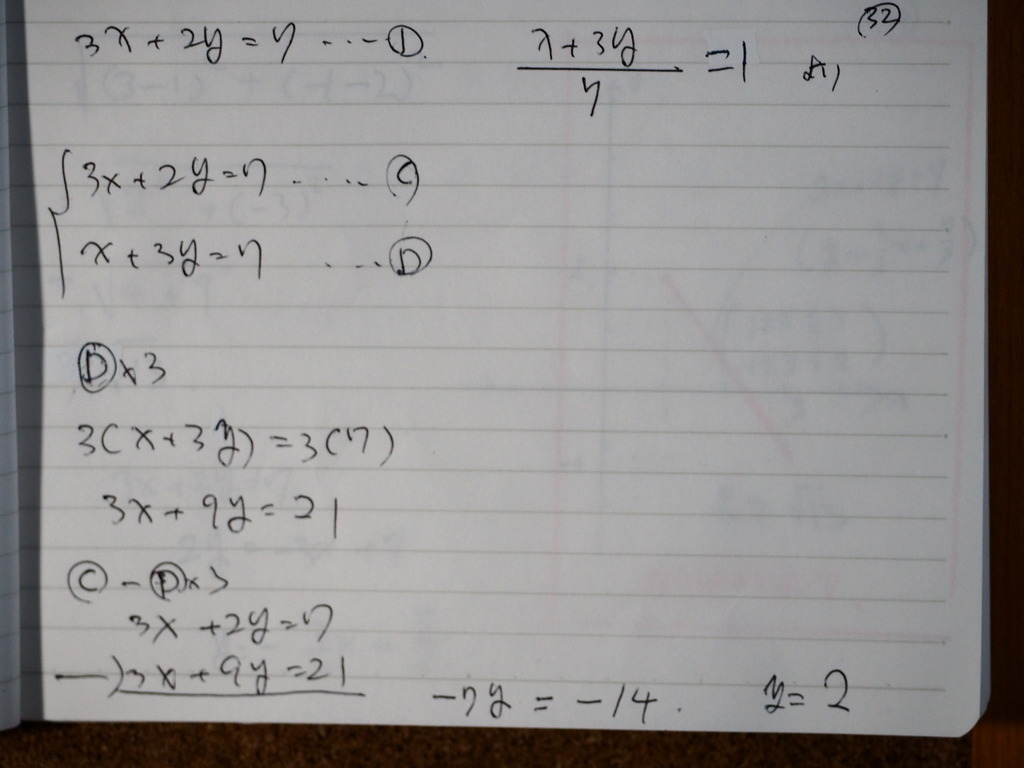 (32)
3x + 2y = 7 ... ⒟. (x + 3y)/7 = 1
3x + 2y = 7 ..... Ⓒ
x + 3y = 7 ... Ⓓ
Ⓓ×3
3(x + 3y) = 3(7)
3x + 9y = 21
Ⓒ - Ⓓ×3
3x + 2y = 7
—) 3x + 9y = 21 -7y = -14. y = 2